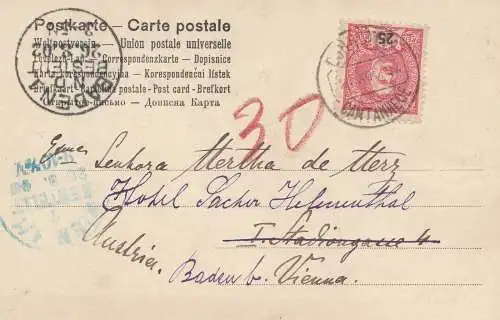 Postkarte – Carte postale
Weltpostverein – Union postale universelle
Correspondenzkarte – Dopisnice
Karta korespondencyjna – Korespondenční lístek
Briefkaart – postale – Post card – Brefkort
Открытое письмо – Дописна Карта
BADEN
25
CANTANHEDE
30
Senhora Mertha de Merz
Hotel Sacher Helenenthal
I. Stadiongasse 4
Austria.
Baden b. Vienna.
WIEN
BESTELLT